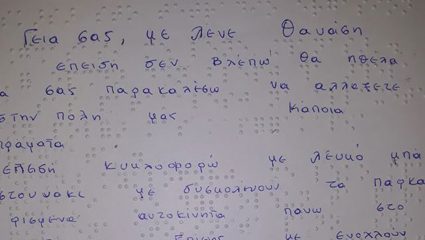 Γεια σας, με λενε Θαναση
επειδη δεν βλεπω θα ηθελα
α σας παρακαλεσω να αλλαξετε
στην πολη μας καποια
πραγματα
επειδη κυκλοφορω με λευκο μπα
στουνακι με δυσκολευουν τα παρκα
ρισμενα αυτοκινητα πανω στο
με ενοχλουν